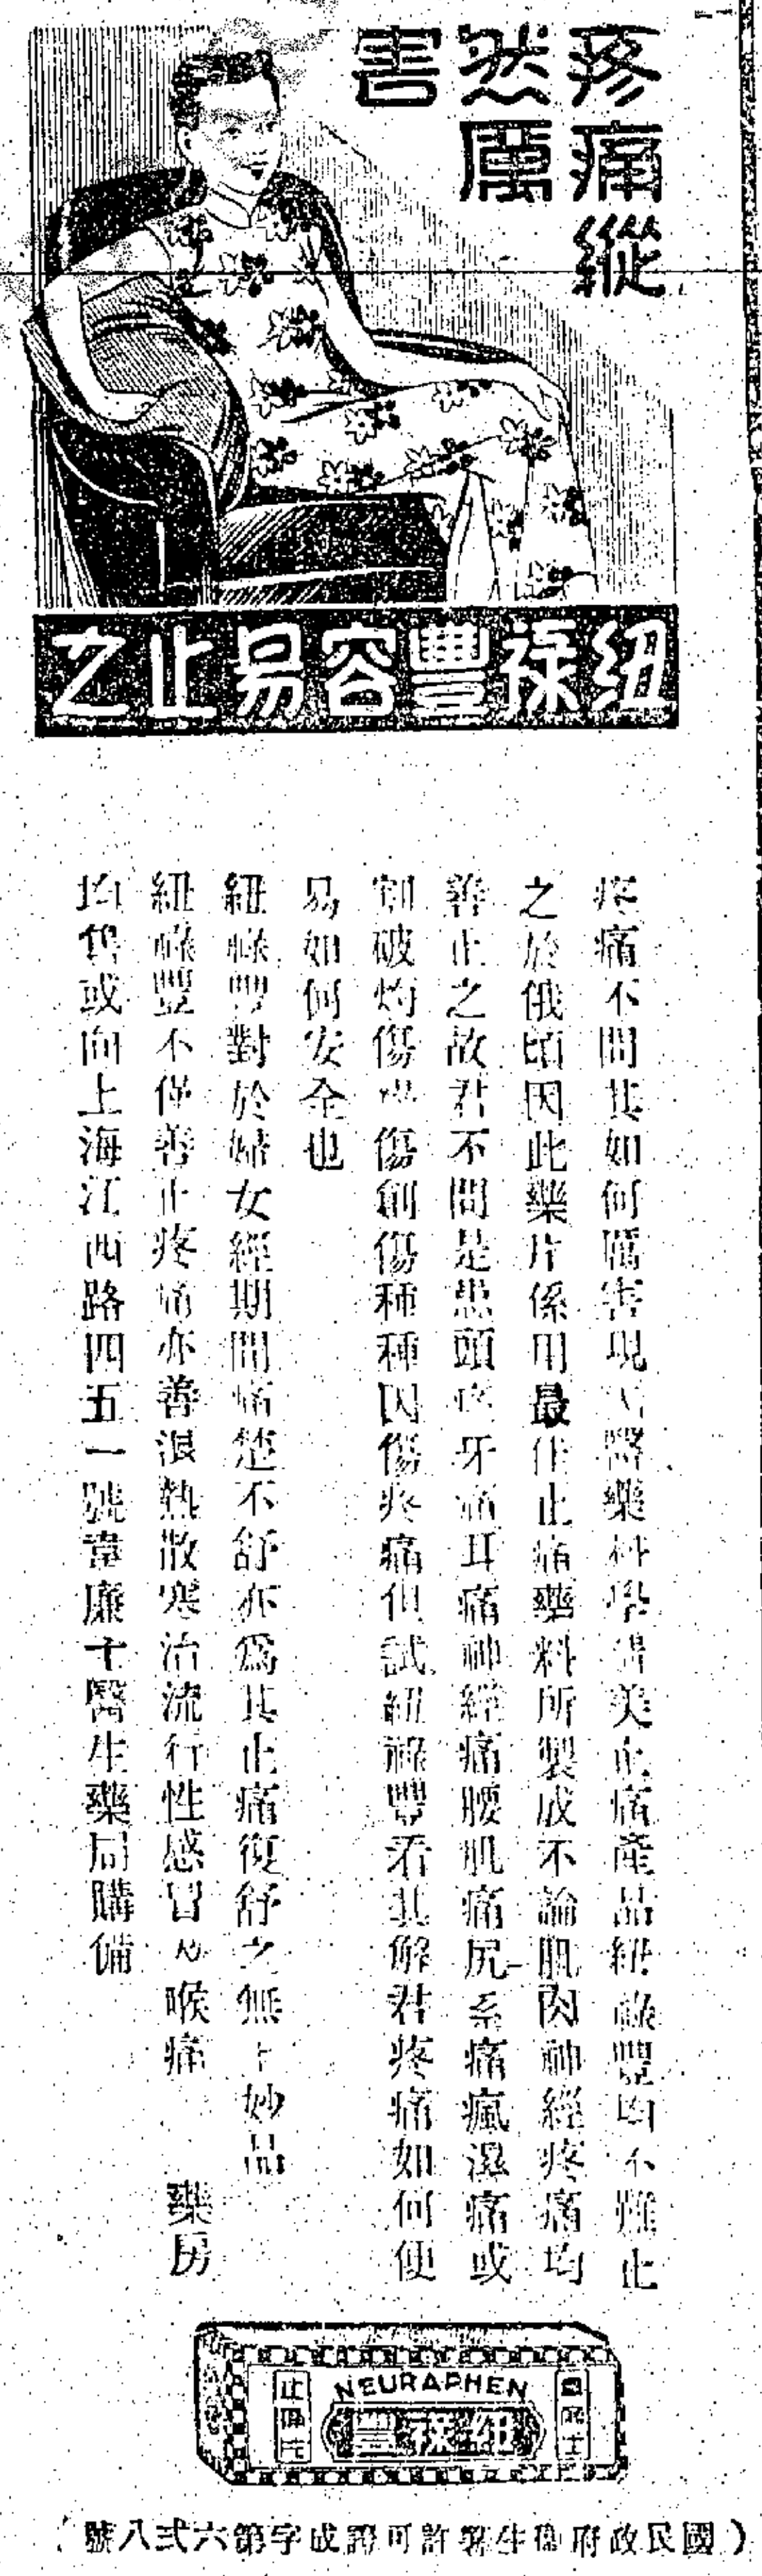 疼痛縱
然厲
害
紐祿豐容易止之
疼痛不問其如何厲害現代醫藥科學精美止痛產品紐祿豐均不難止
之於俄頃因此藥片係用最佳止痛藥料所製成不論肌肉神經疼痛均
善止之故君不問是患頭疼牙痛耳痛神經痛腰肌痛尻系痛瘋濕痛或
割破灼傷燙傷創傷種種因傷疼痛但試紐祿豐看其解君疼痛如何便
易如何安全也
紐祿豐對於婦女經期間痛楚不舒亦爲其止痛復舒之無上妙品
紐祿豐不僅善止疼痛亦善退熱散寒治流行性感冒及喉痛 藥房
均售或向上海江西路四五一號韋廉士醫生藥局購備
NEURAPHEN
紐祿豐
止痛片
韋廉士
(國民政府衞生署許可證成字第六弍八號)